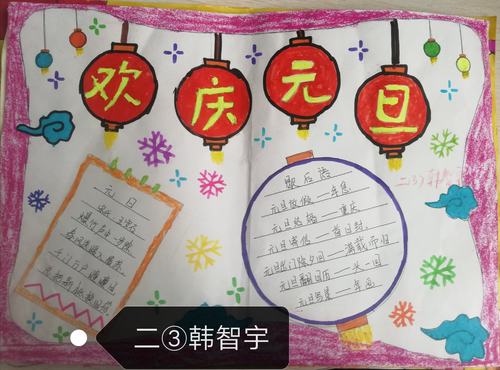 欢庆元旦
二(3)韩智宇
元日
爆竹声中一岁除,
春风送暖入屠苏。
千门万户曈曈日
总把新桃换旧符。
歇后语
元旦放假——年息
元旦 ——重庆
元旦寄信——首日封.
元旦出门除夕回——满载而归
元旦翻日历——头一回
二③韩智宇